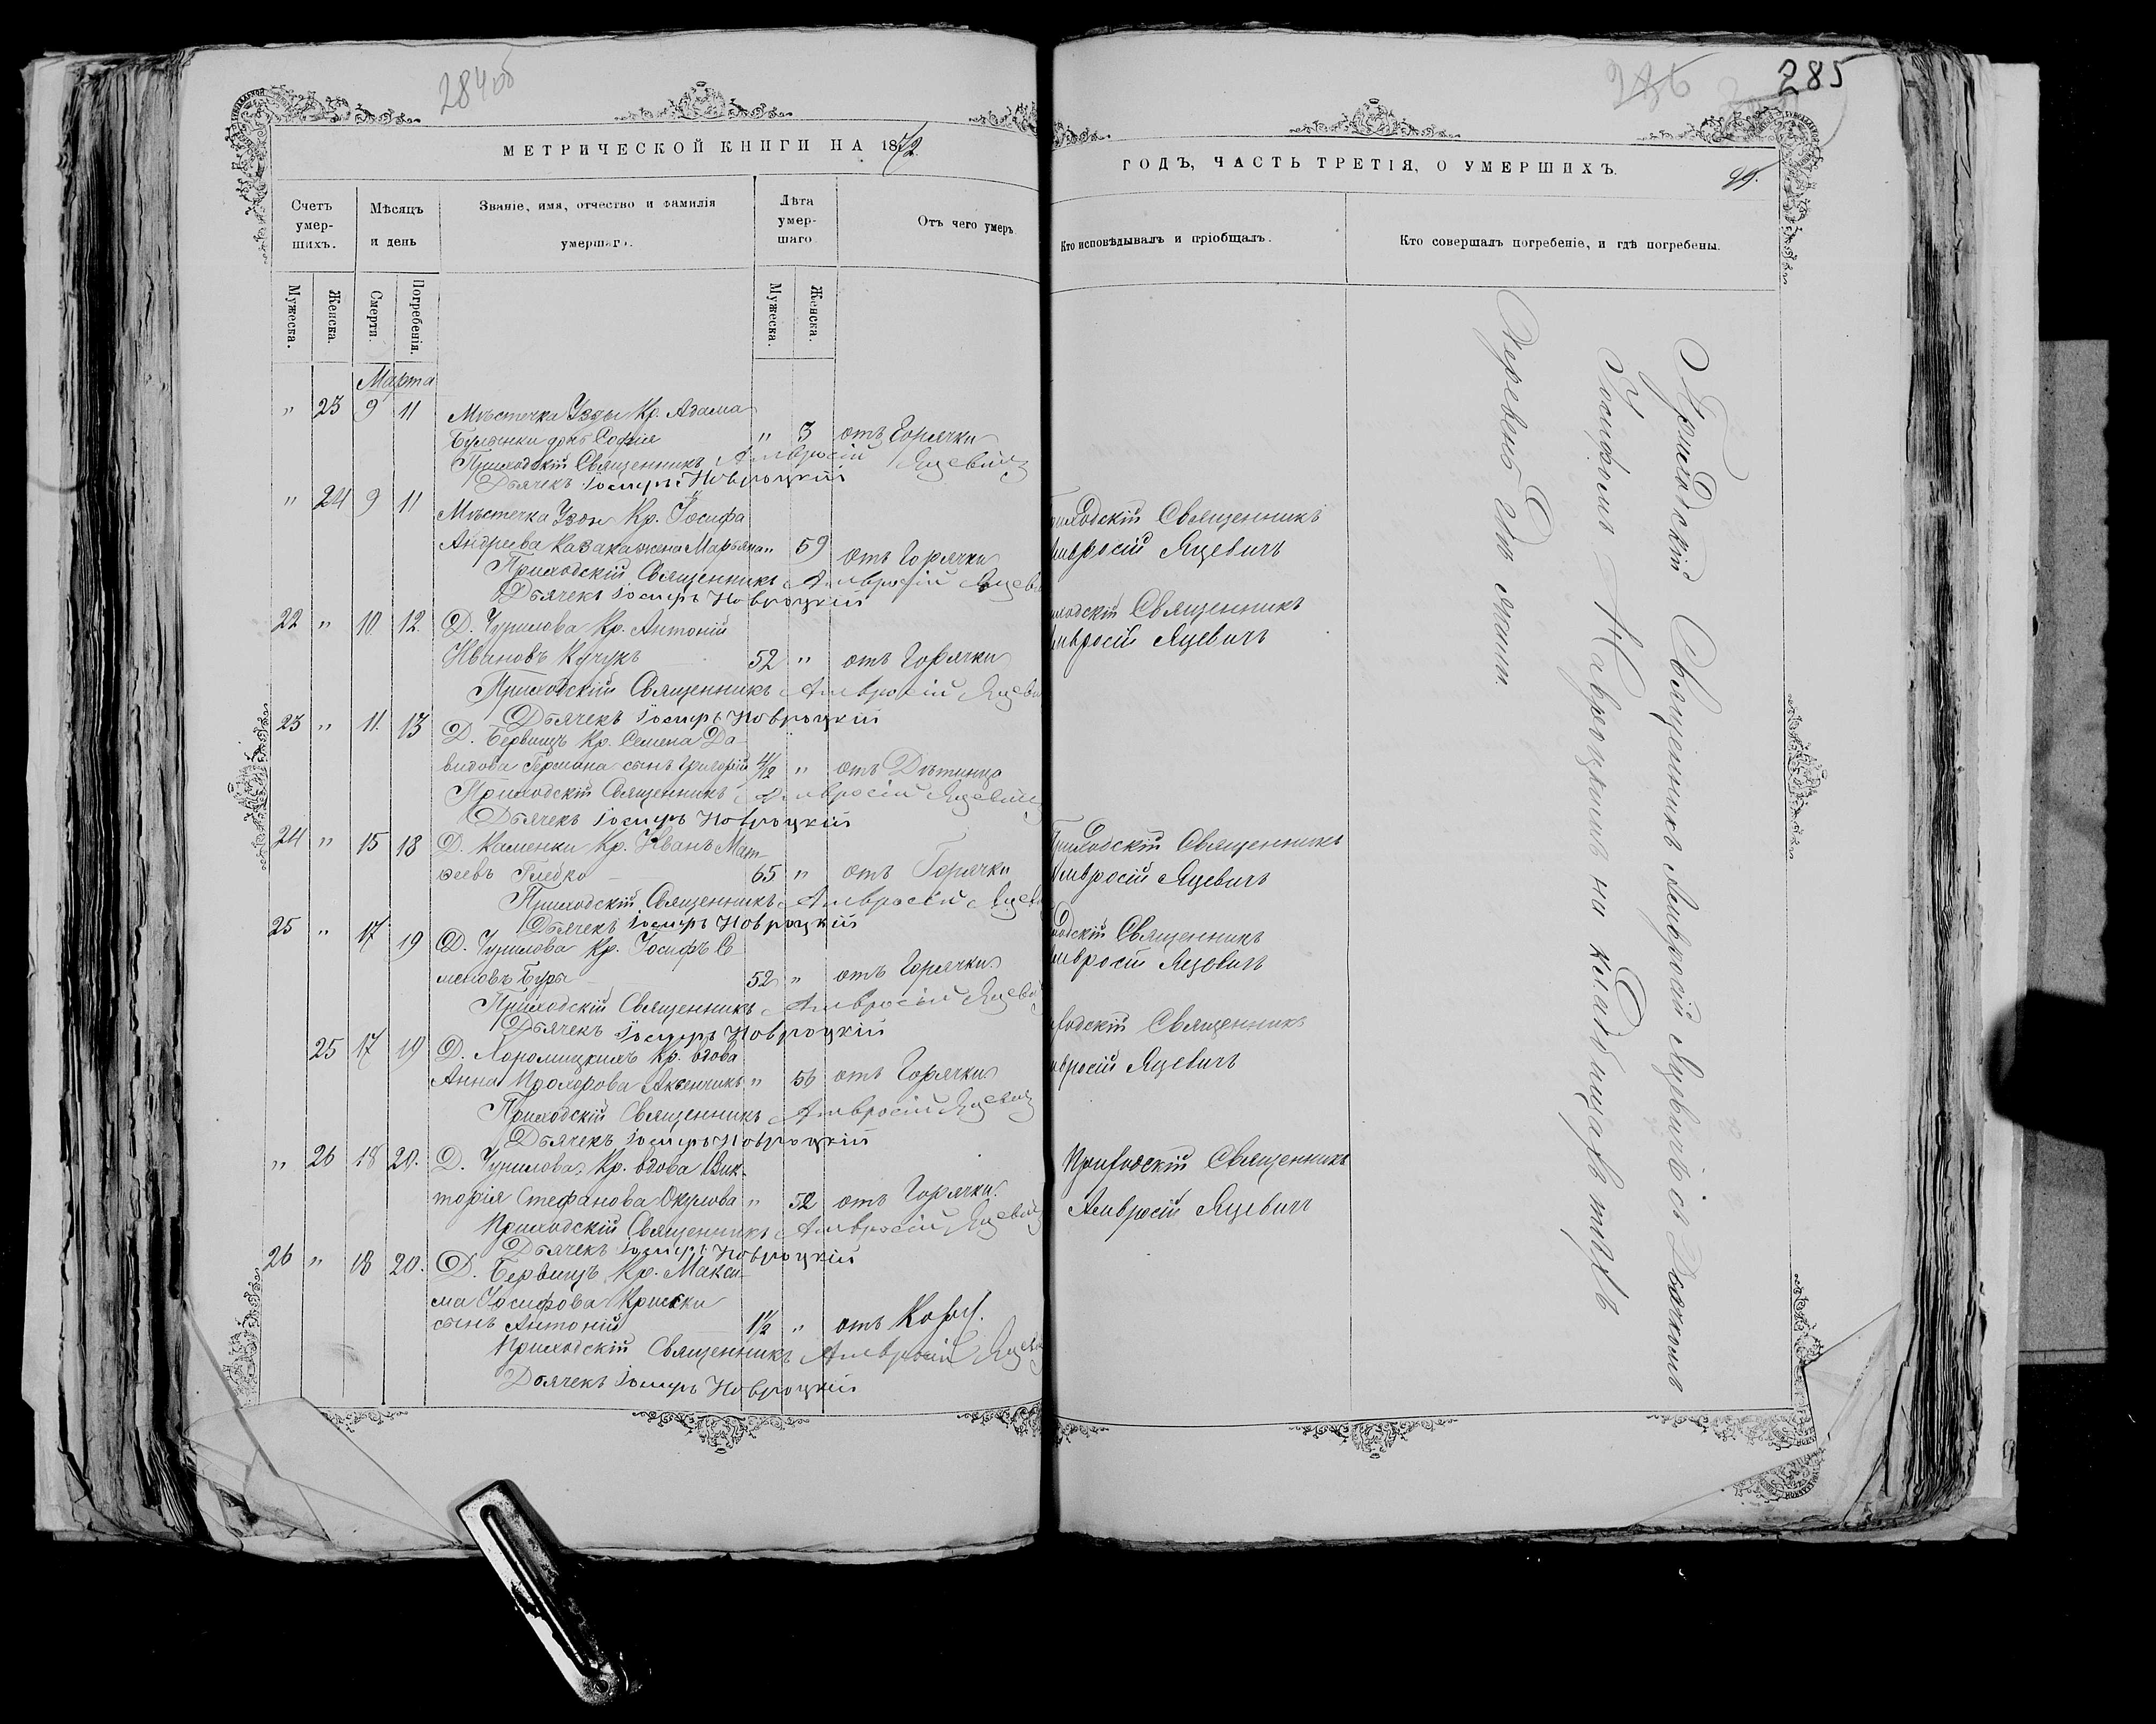 284об
МЕТРИЧЕСКОЙ КНИГИ НА 1872
Счетъ умершихъ.
Мѣсяцъ и день
Званіе, имя, отчество и фамилія умершаго.
Лѣта умершаго
Отъ чего умеръ
Мужеска.
Женска.
Смерти.
Погребенія.
Мужеска.
Женска.
Марта
" 23 9 11 Мѣстечка Узды Кр. Адама
дочь Софія " 3 отъ Горячки
Приходскій Священникъ Амвросій Яцевичъ
Дьячекъ Іосифъ Новроцкій
" 24 9 11 Мѣстечка Узды Кр. Іосифа
Андреева Казака жена Марьяна " 59 отъ Горячки
Приходскій Священникъ Амвросій Яцеви
Дьячекъ Іосифъ Новроцкій
22 " 10 12. Д. Чурилова Кр. Антоній
Ивановъ Кучукъ 52 " отъ Горячки
Приходскій Священникъ Амвросій Яцеви
Дьячекъ Іосифъ Новроцкій
23 " 11. 13 Д. Бервищъ Кр. Семена Да-
видова Германа сынъ Григорій 4/12 " отъ Дѣтинца
Приходскій Священникъ Амвросій Яцевичъ
Дьячекъ Іосифъ Новроцкій
24 " 15 18 Д. Каменки Кр. Иванъ Мат-
ѳеевъ Глебко 65 " отъ Горячки
Приходскій Священникъ Амвросій Яцеви
Дьячекъ Іосифъ Новроцкій
25 " 17 19 Д. Чурилова Кр. Іосифъ Се
меновъ Буры 52 " отъ Горячки.
Приходскій Священникъ Амвросій Яцеви
Дьячекъ Іосифъ Новроцкій
25 17 19 Д. Хоромицкихъ Кр. вдова
Анна Прохорова Аксенчикъ " 56 отъ Горячки
Приходскій Священникъ Амвросій Яцевичъ
Дьячекъ Іосифъ Новроцкій
" 26 18 20. Д. Чурилова Кр. вдова Вик-
торія Стефанова Окулова " 52 отъ Горячки.
Приходскій Священникъ Амвросій Яцевичъ
Дьячекъ Іосифъ Новроцкій
26 " 18 20. Д. Бервищъ Кр. Макси-
ма Іосифова
сынъ Антоній 1½ " отъ
Приходскій Священникъ Амвросій Яцеви
Дьячекъ Іосифъ Новроцкій
285
ГОДЪ, ЧАСТЬ ТРЕТІЯ, О УМЕРШИХЪ.
Кто исповѣдывалъ и пріобщалъ.
Кто совершалъ погребеніе, и гдѣ погребены.
риходскій Священникъ
Амвросій Яцевичъ
иходскій Священникъ
Амвросій Яцевичъ
Приходскій Священникъ
Амвросій Яцевичъ
ходскій Священникъ
мвросій Яцевичъ
ходскій Священникъ
вросій Яцевичъ
Приходскій Священникъ
Амвросій Яцевичъ
Приходскій Священникъ Амвросій Яцевичъ съ Дьячкомъ
Іосифомъ Навроцкимъ на кладбищахъ тѣхъ
деревень гдѣ жили.